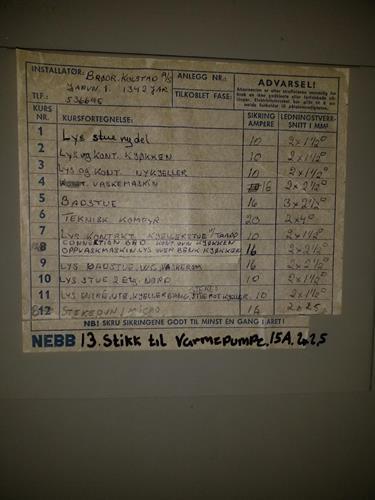 INSTALLATØR: BRØDR. KOLSTAD A/S ANLEGG NR.:
JARVN. 1. 1342 JAR
TLF.: 536645 TILKOBLET FASE:
ADVARSEL!
KURS NR. KURSFORTEGNELSE: SIKRING AMPERE LEDNINGSTVERR-SNITT I MM²
1 LYS STUE NY DEL 10 2x1½
2 LYS OG KONT. KJØKKEN 10 2x1½
3 LYS OG KONT. NYKJELLER 10 2x1½
4 KONT. VASKEMASKIN 16 2x2½
5 BADSTUE 16 3x2½
6 TEKNISK KOMFYR 20 2x4
7 LYS KONTAKT KJELLERSTUE 10 2x1½
8 KONT. OVN KJØKKEN
OPPVASKMASKIN LYS OVER BENK KJØKKEN 16 2x2½
9 LYS BADSTUE, WC, VASKEROM 16 2x2½
10 LYS STUE 2 ETG. NORD 10 2x1½
11 LYS ENTRE, UTE, KJELLERGANG, 10 2x1½
12 STEKEOVN / MICRO 16 2x2.5
NB! SKRU SIKRINGENE GODT TIL MINST EN GANG I ÅRET!
NEBB 13. Stikk til Varmepumpe. 15A. 2x2,5